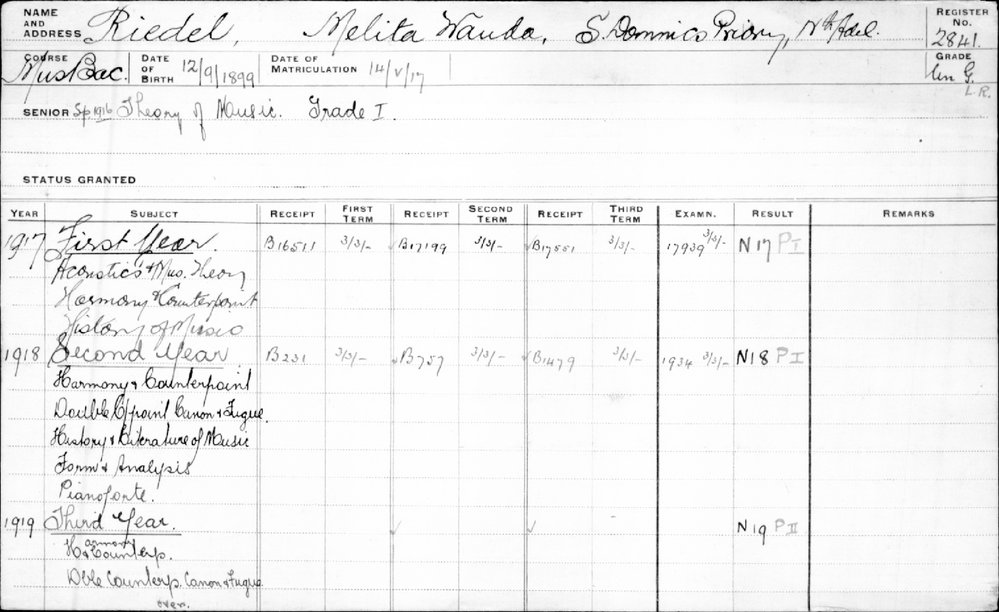 NAME AND ADDRESS Riedel, Melita Wanda, S. Dominics Priory, Nth Adel. REGISTER No. 2841.
COURSE Mus Bac. DATE OF BIRTH 12/9/1899 DATE OF MATRICULATION 14/V/17 GRADE G. L.R.
SENIOR Sp 1916 Theory of Music. Grade I.
STATUS GRANTED
YEAR SUBJECT RECEIPT FIRST TERM RECEIPT SECOND TERM RECEIPT THIRD TERM EXAMN. RESULT REMARKS
1917 First Year. B16511 3/3/- B17199 3/3/- B17551 3/3/- 17939 3/3/- N17 PI
Acoustics & Mus. Theory
Harmony & Counterpoint
History of Music
1918 Second Year B231 3/3/- B757 3/3/- B1479 3/3/- 1934 3/3/- N18 PI
Harmony & Counterpoint
Double C'point Canon & Fugue.
History & Literature of Music
Form & Analysis
Pianoforte.
1919 Third Year. N19 PII
Harmony & Counterp.
Dble Counterp. Canon & Fugue
over.